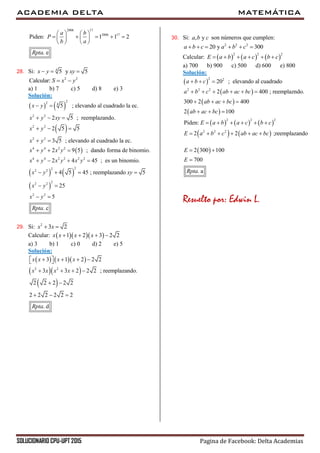 ACADEMIA DELTA MATEMÁTICA
Piden: P = (a/b)^2008 + (b/a)^17 = 1^2008 + 1^17 = 2
Rpta. c
28. Si: x − y = ∜5 y xy = √5
Calcular: S = x² − y²
a) 1 b) 7 c) 5 d) 8 e) 3
Solución:
(x − y)² = (∜5)² ; elevando al cuadrado la ec.
x² + y² − 2xy = √5 ; reemplazando.
x² + y² − 2(√5) = √5
x² + y² = 3√5 ; elevando al cuadrado la ec.
x⁴ + y⁴ + 2x²y² = 9(5) ; dando forma de binomio.
x⁴ + y⁴ − 2x²y² + 4x²y² = 45 ; es un binomio.
(x² − y²)² + 4(√5)² = 45 ; reemplazando xy = √5
(x² − y²)² = 25
x² − y² = 5
Rpta. c
29. Si: x² + 3x = √2
Calcular: x(x + 1)(x + 2)(x + 3) − 2√2
a) 3 b) 1 c) 0 d) 2 e) 5
Solución:
[x(x + 3)](x + 1)(x + 2) − 2√2
(x² + 3x)(x² + 3x + 2) − 2√2 ; reemplazando.
√2(√2 + 2) − 2√2
2 + 2√2 − 2√2 = 2
Rpta. d
30. Si: a, b y c son números que cumplen:
a + b + c = 20 y a² + b² + c² = 300
Calcular: E = (a + b)² + (a + c)² + (b + c)²
a) 700 b) 900 c) 500 d) 600 e) 800
Solución:
(a + b + c)² = 20² ; elevando al cuadrado
a² + b² + c² + 2(ab + ac + bc) = 400 ; reemplazndo.
300 + 2(ab + ac + bc) = 400
2(ab + ac + bc) = 100
Piden: E = (a + b)² + (a + c)² + (b + c)²
E = 2(a² + b² + c²) + 2(ab + ac + bc) ;reemplazando
E = 2(300) + 100
E = 700
Rpta. a
Resuelto por: Edwin L.
SOLUCIONARIO CPU-UPT 2015 Pagina de Facebook: Delta Academias